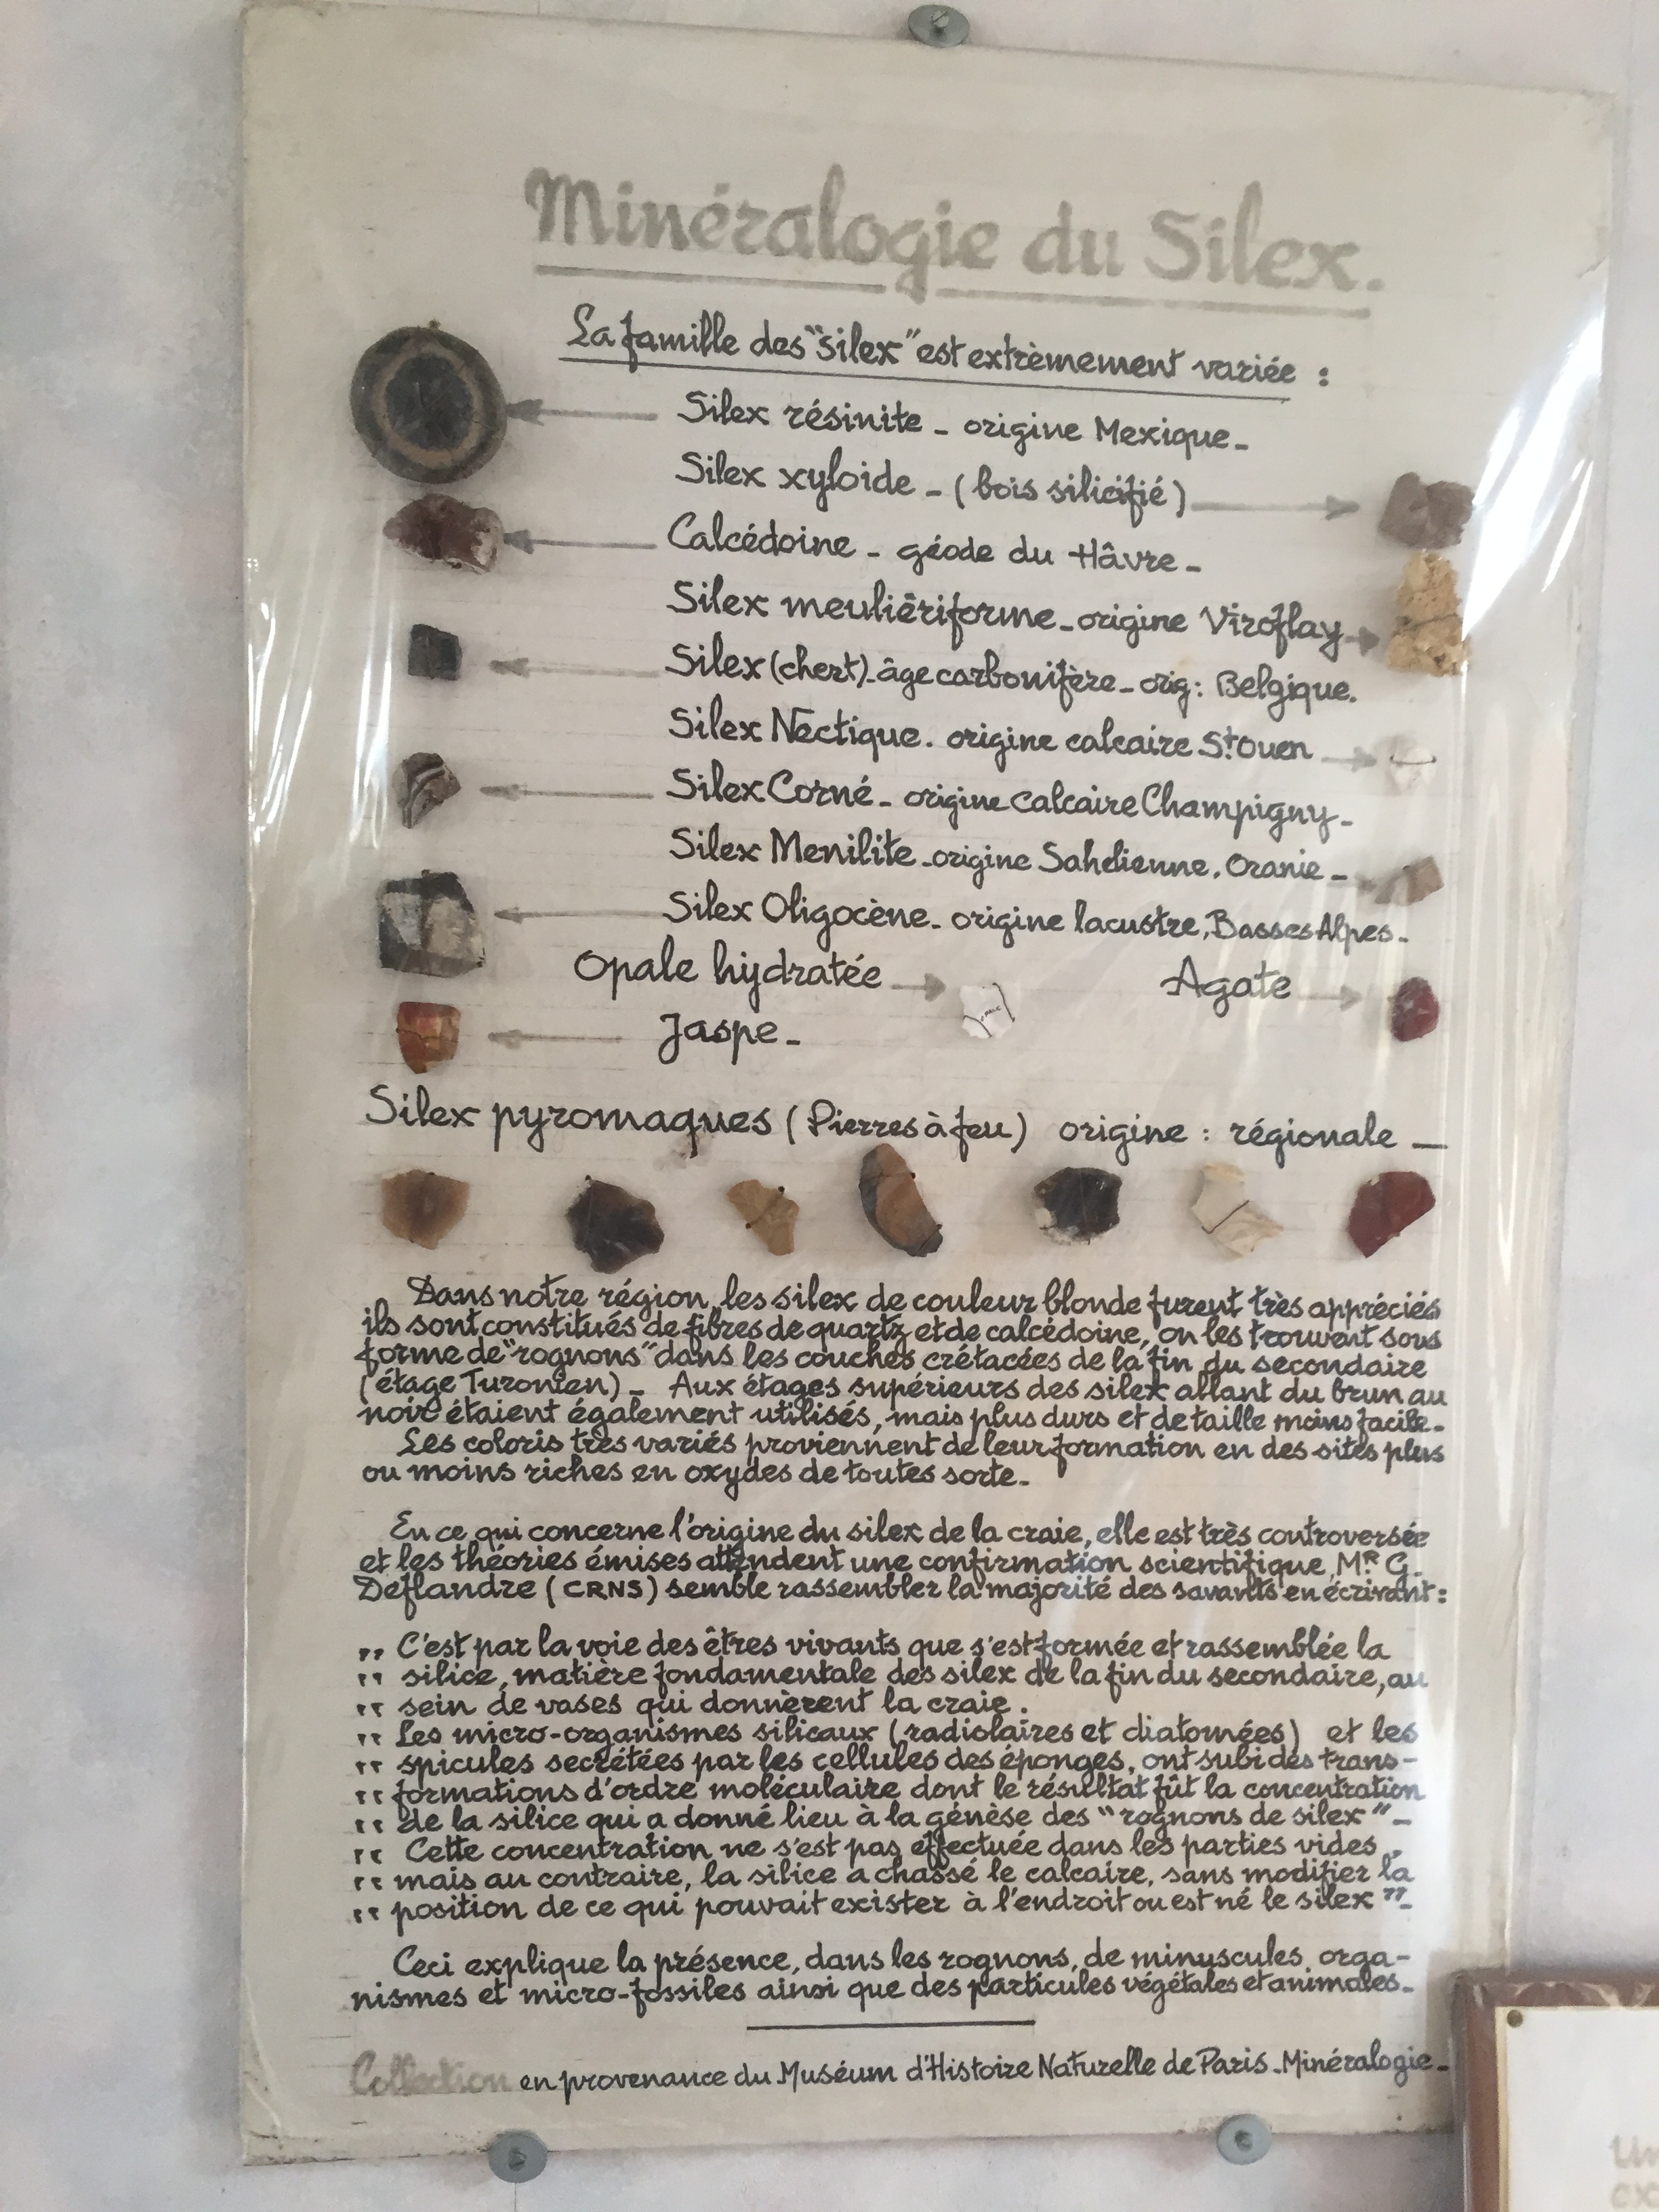 Minéralogie du Silex.
La famille des "silex" est extrèmement variée :
Silex résinite - origine Mexique -
Silex xyloide - (bois silicifié)
Calcédoine - géode du Hâvre -
Silex meulièriforme - origine Viroflay
Silex (chert) - âge carbonifère - orig : Belgique.
Silex Nectique. origine calcaire St Ouen
Silex Corné - origine calcaire Champigny -
Silex Menilite - origine Sahélienne. Oranie -
Silex Oligocène - origine lacustre, Basses Alpes -
Opale hydratée Agate
Jaspe -
Silex pyromaques (Pierres à feu) origine : régionale —
Dans notre région, les silex de couleur blonde furent très appréciés
ils sont constitués de fibres de quartz et de calcédoine, on les trouvent sous
forme de "rognons" dans les couches crétacées de la fin du secondaire
(étage Turonien) - Aux étages supérieurs des silex allant du brun au
noir étaient également utilisés, mais plus durs et de taille moins facile -
Les coloris très variés proviennent de leur formation en des sites plus
ou moins riches en oxydes de toutes sorte -
En ce qui concerne l'origine du silex de la craie, elle est très controversée
et les théories émises attendent une confirmation scientifique, Mr G.
Deflandre (CRNS) semble rassembler la majorité des savants en écrivant :
,, C'est par la voie des êtres vivants que s'est formée et rassemblée la
'' silice, matière fondamentale des silex de la fin du secondaire, au
'' sein de vases qui donnèrent la craie.
'' Les micro-organismes silicaux (radiolaires et diatomées) et les
'' spicules secrétées par les cellules des éponges, ont subi des trans-
'' formations d'ordre moléculaire dont le résultat fût la concentration
'' de la silice qui a donné lieu à la génèse des "rognons de silex" -
'' Cette concentration ne s'est pas effectuée dans les parties vides,
'' mais au contraire, la silice a chassé le calcaire, sans modifier la
'' position de ce qui pouvait exister à l'endroit ou est né le silex" -
Ceci explique la présence, dans les rognons, de minuscules orga-
nismes et micro-fossiles ainsi que des particules végétales et animales -
Collection en provenance du Muséum d'Histoire Naturelle de Paris - Minéralogie -